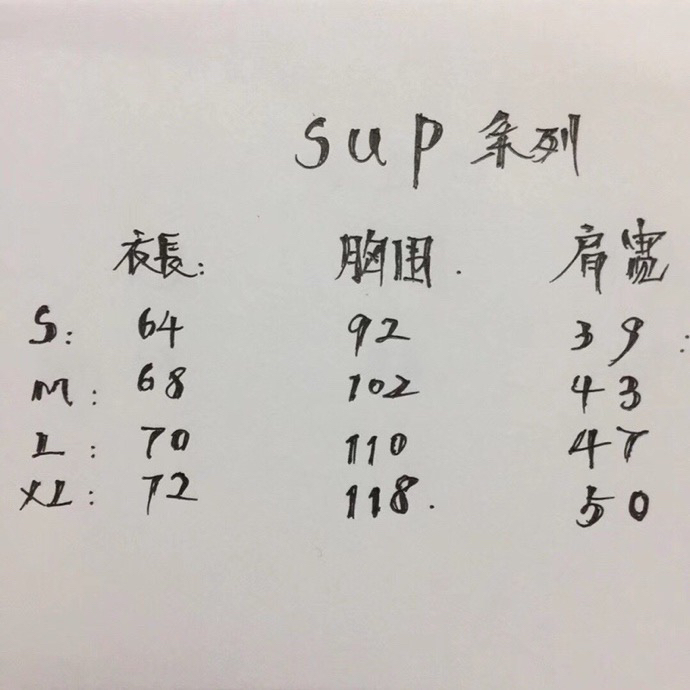 sup 系列
衣長: 胸围. 肩宽
S: 64 92 39:
M: 68 102 43
L: 70 110 47
XL: 72 118. 50